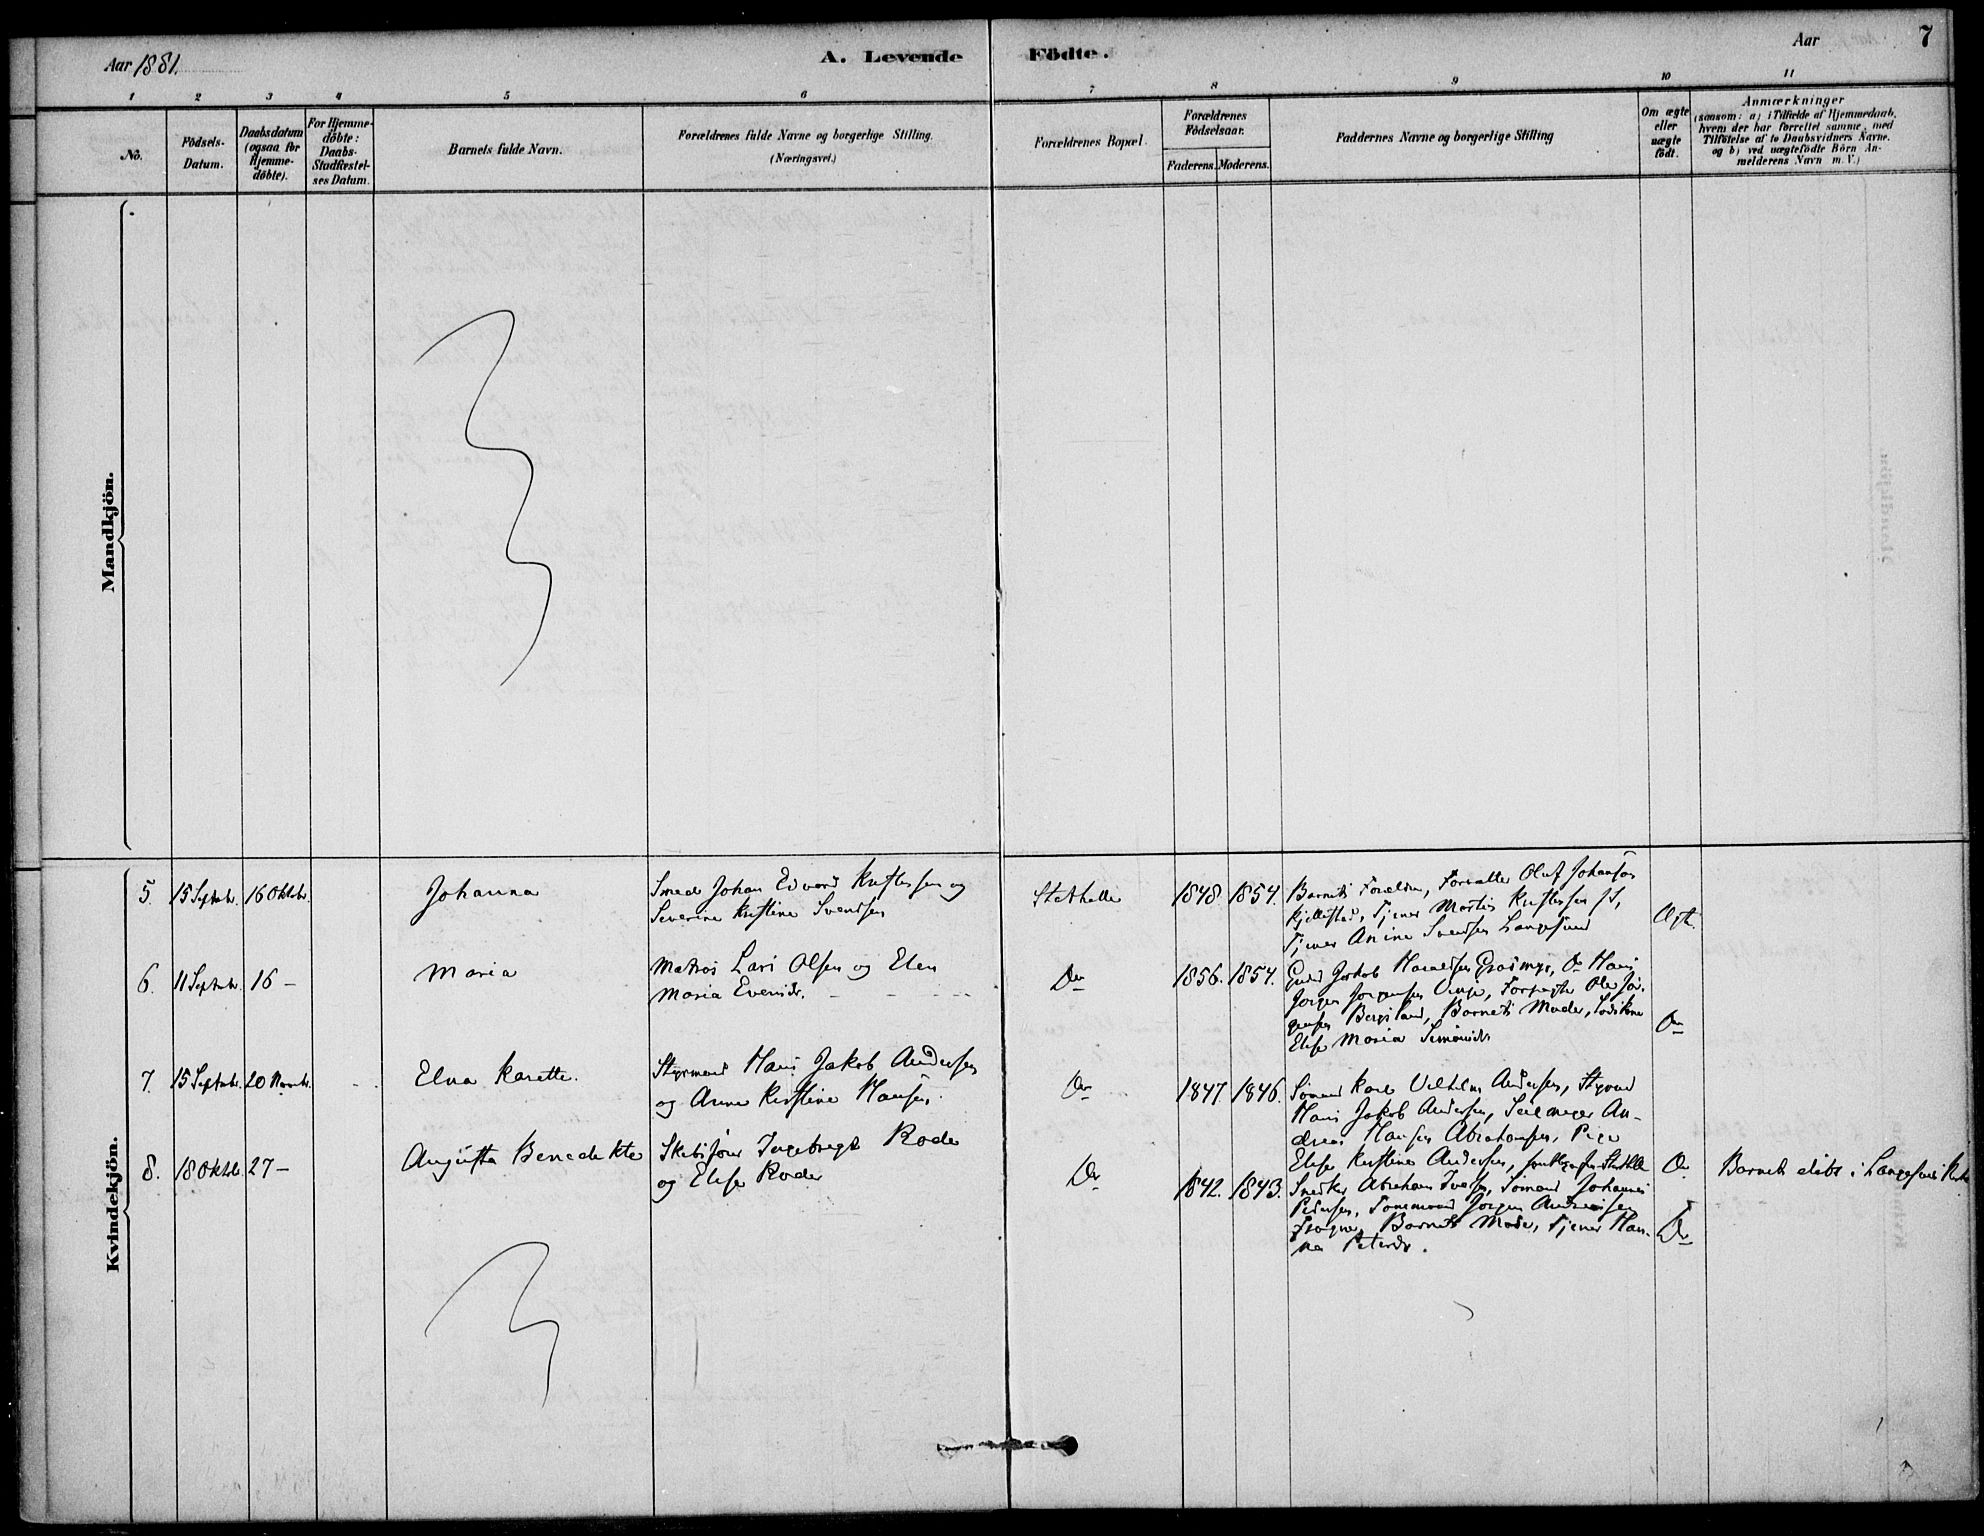 Aar 1881.
A. Levende Födte.
Aar
7
1 2 3 4 5 6 7 8 9 10 11
No.
Födsels-
Datum.
Daabsdatum
(ogsaa for
Hjemme-
döbte).
For Hjemme-
döbte:
Daabs-
Stadfæstel-
ses Datum.
Barnets fulde Navn.
Forældrenes fulde Navne og borgerlige Stilling.
(Næringsvei.)
Forældrenes Bopæl.
Forældrenes
Födselsaar.
Faderens. Moderens.
Faddernes Navne og borgerlige Stilling
Om ægte
eller
uægte
födt.
Anmærkninger
(saasom: a) i Tilfælde af Hjemmedaab,
hvem der har forrettet samme, med
Tilföielse af to Daabsvidners Navne.
og b) ved uægtefödte Börn An-
melderens Navn m. V.)
Mandkjön.
Kvindekjön.
5. 15 Septbr. 16 Oktbr.
Johanna
Smed Johan Edvard Kristensen og
Severine Kristine Svendsen
Stathelle
1848. 1854.
Barnets Forældre, Forvalter Oluf Johansen
Tjener Martin Kristensen
Tjener Anine Svendsen Langesund
Ægte.
6. 11 Septbr. 16 –
Maria
Matros Lars Olsen og Elen
Maria Evensdr.
Do
1856. 1854.
Jakob Grasmyr, Do Hans
Jørgen Jørgensen Vinje, Ole Jør-
gensen Bergsland, Barnets Moder,
Elise Maria Simonsdr.
Do
7. 15 Septbr. 20 Novbr.
Elna Karette.
Styrmand Hans Jakob Andersen
og Anne Kirstine Hansen.
Do
1847. 1846.
Sömand Karl Vilhelm Andersen, Styrmd
Hans Jakob Andersen, Seilmager An-
dreas Hansen Abrahamsen, Pige
Elise Kirstine Andersen,
Do
Barnet döbt i Langesunds Kirke
8. 18 Oktbr. 27 –
Augusta Benedikte
Skibsförer Ingebregt Rode
og Elise Rode
Do
1842. 1843.
Snedker Abraham Iversen, Sömand Johannes
Pedersen, Tømmermand Jørgen Andreasen
Barnets Moder, Tjener Han-
na Petersdr.
Do